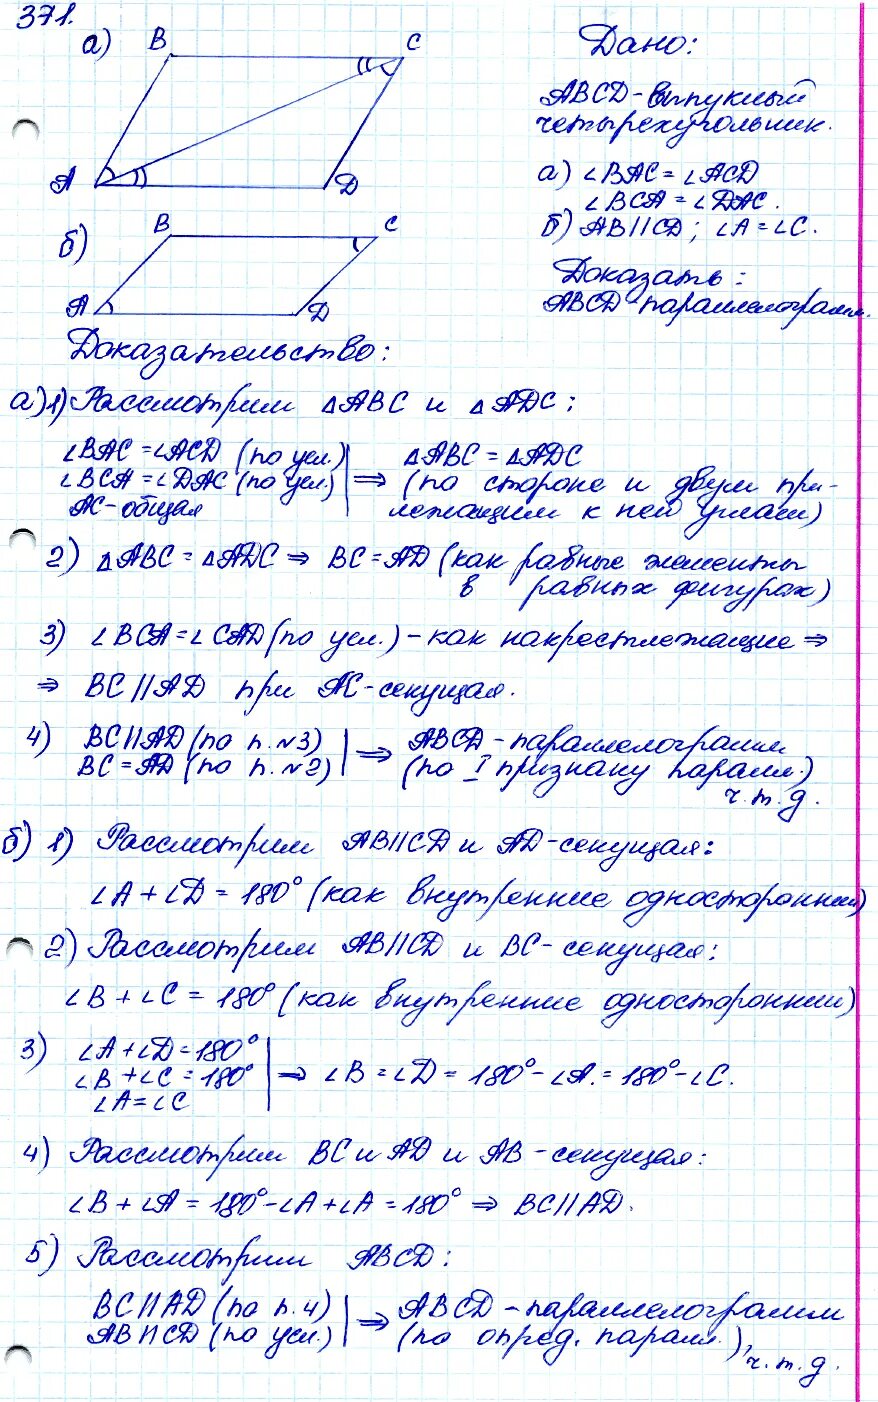 371.
а)
B
C
A
D
б)
B
C
A
D
Дано:
ABCD - выпуклый
четырехугольник.
а) ∠BAC = ∠ACD
∠BCA = ∠DAC.
б) AB∥CD; ∠A = ∠C.
Доказать:
ABCD - параллелограмм.
Доказательство:
а) 1) Рассмотрим △ABC и △ADC:
∠BAC = ∠ACD (по усл.)
∠BCA = ∠DAC (по усл.)
AC - общая
⇒ △ABC = △ADC
(по стороне и двум при-
лежащим к ней углам)
2) △ABC = △ADC ⇒ BC = AD (как равные элементы
в равных фигурах)
3) ∠BCA = ∠CAD (по усл.) - как накрестлежащие ⇒
⇒ BC∥AD при AC - секущая.
4) BC∥AD (по п.№3)
BC = AD (по п.№2)
⇒ ABCD - параллелограмм
(по I признаку паралл.)
ч.т.д.
б) 1) Рассмотрим AB∥CD и AD - секущая:
∠A + ∠D = 180° (как внутренние односторонние)
2) Рассмотрим AB∥CD и BC - секущая:
∠B + ∠C = 180° (как внутренние односторонние)
3) ∠A + ∠D = 180°
∠B + ∠C = 180°
∠A = ∠C
⇒ ∠B = ∠D = 180° - ∠A. = 180° - ∠C.
4) Рассмотрим BC и AD и AB - секущая:
∠B + ∠A = 180° - ∠A + ∠A = 180° ⇒ BC∥AD.
5) Рассмотрим ABCD:
BC∥AD (по п.4)
AB∥CD (по усл.)
⇒ ABCD - параллелограмм
(по опред. паралл.),
ч.т.д.